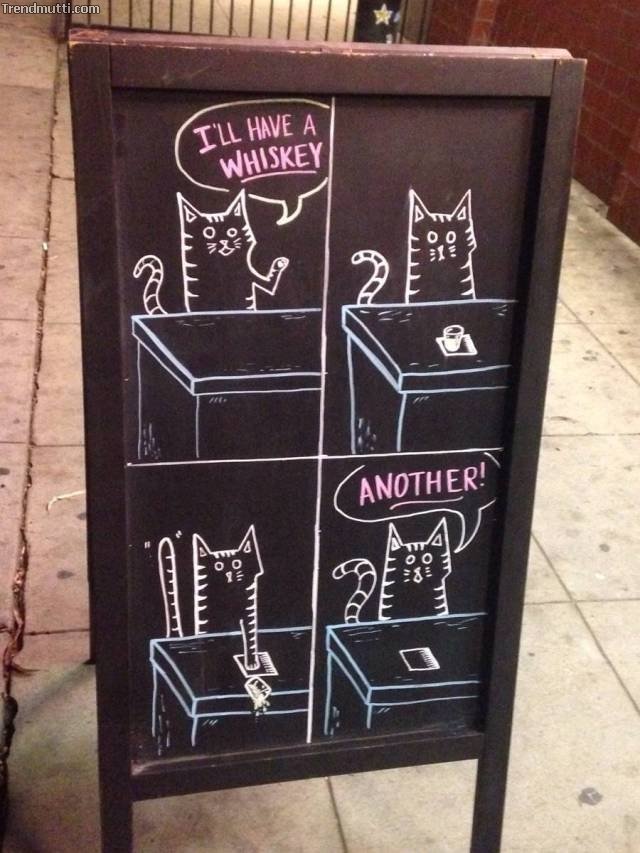 Trendmutti.com
I'LL HAVE A
WHISKEY
ANOTHER!